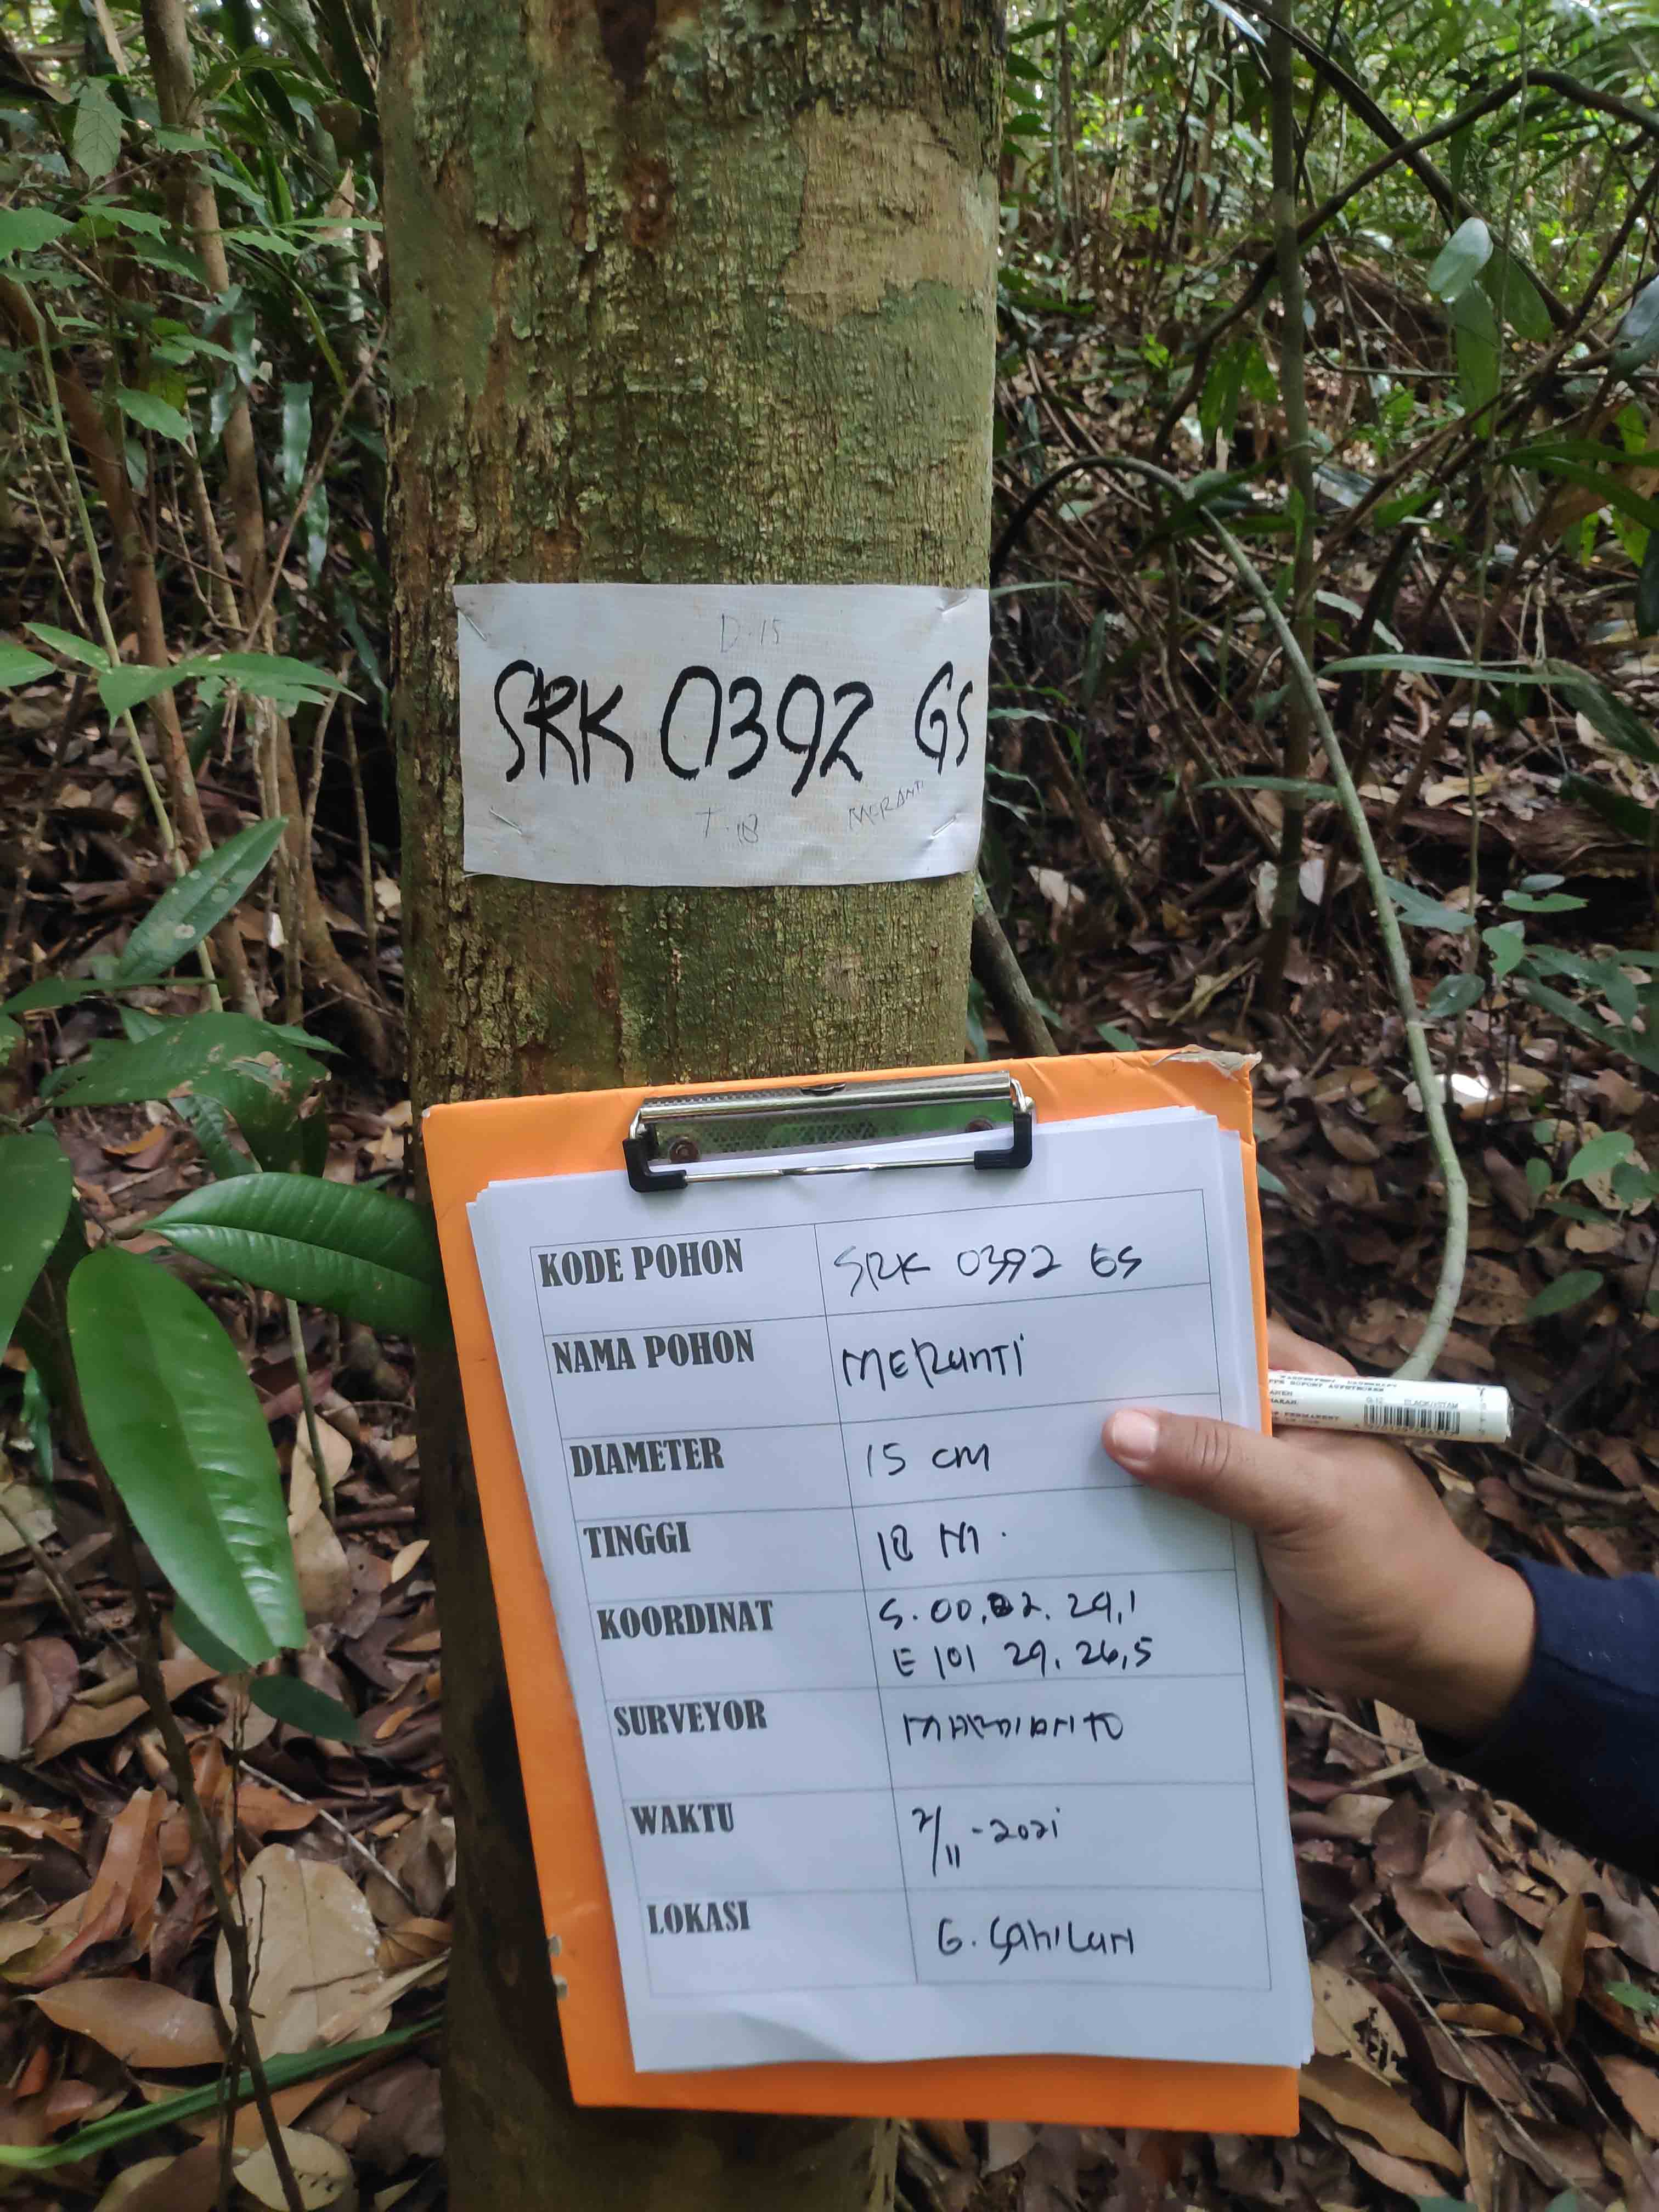 D.15
SRK 0392 GS
T.18
MERANTI
KODE POHON SRK 0392 GS
NAMA POHON MERANTI
DIAMETER 15 cm
TINGGI 18 M.
KOORDINAT S. 00.02. 29,1
E 101 29. 26,5
SURVEYOR MARDIANTO
WAKTU 2/11 - 2021
LOKASI G. SAHILAN
PERMANENT